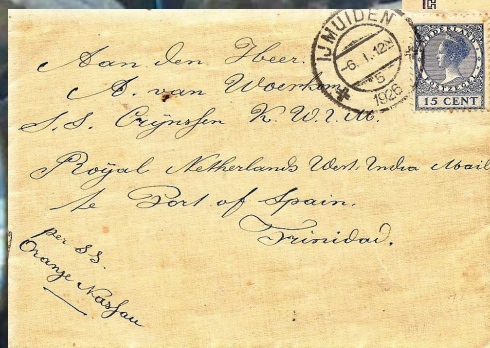 IJMUIDEN
-6.1.12N
5
1926
NEDERLAND
15 CENT
Aan den Heer.
A. van Woerkom
S.S. Crijnssen K.W.I.M.
Royal Netherlands West. India Mail
te Port of Spain.
Trinidad.
per SS.
Oranje Nassau